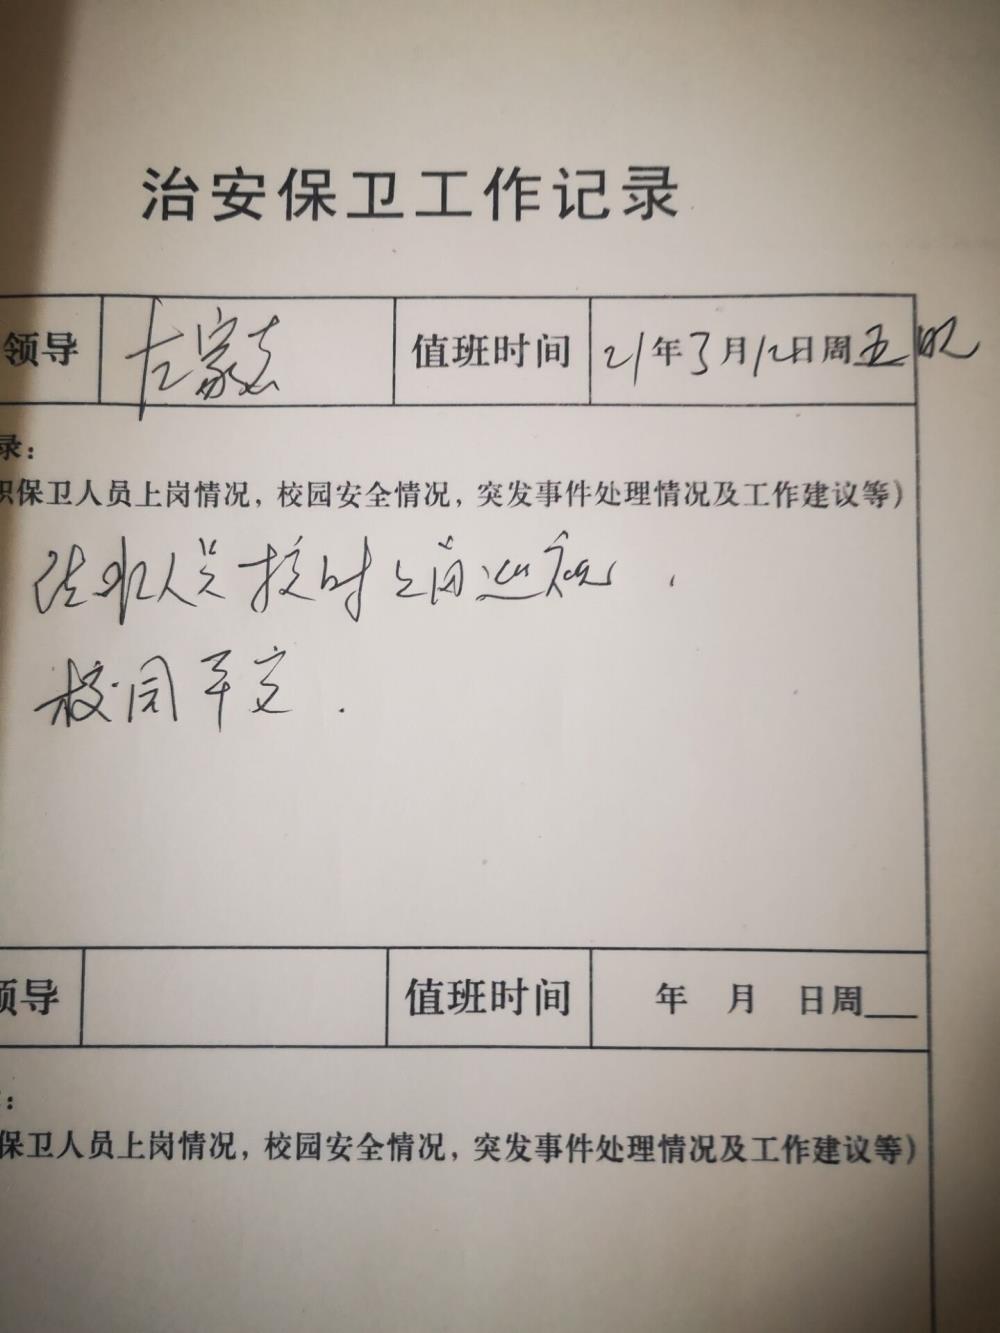 治安保卫工作记录
领导 左家志 值班时间 21年3月12日周五晚
录：
职保卫人员上岗情况，校园安全情况，突发事件处理情况及工作建议等）
值班人员按时上岗巡视．
校园平安．
领导 值班时间 年 月 日周
：
保卫人员上岗情况，校园安全情况，突发事件处理情况及工作建议等）